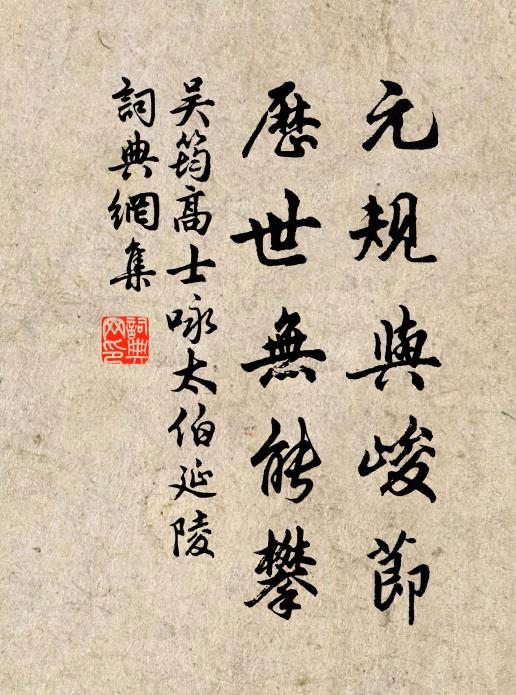 元規與峻節
歷世無能攀
吴筠高士咏太伯延陵
詞典網集
詞典網印